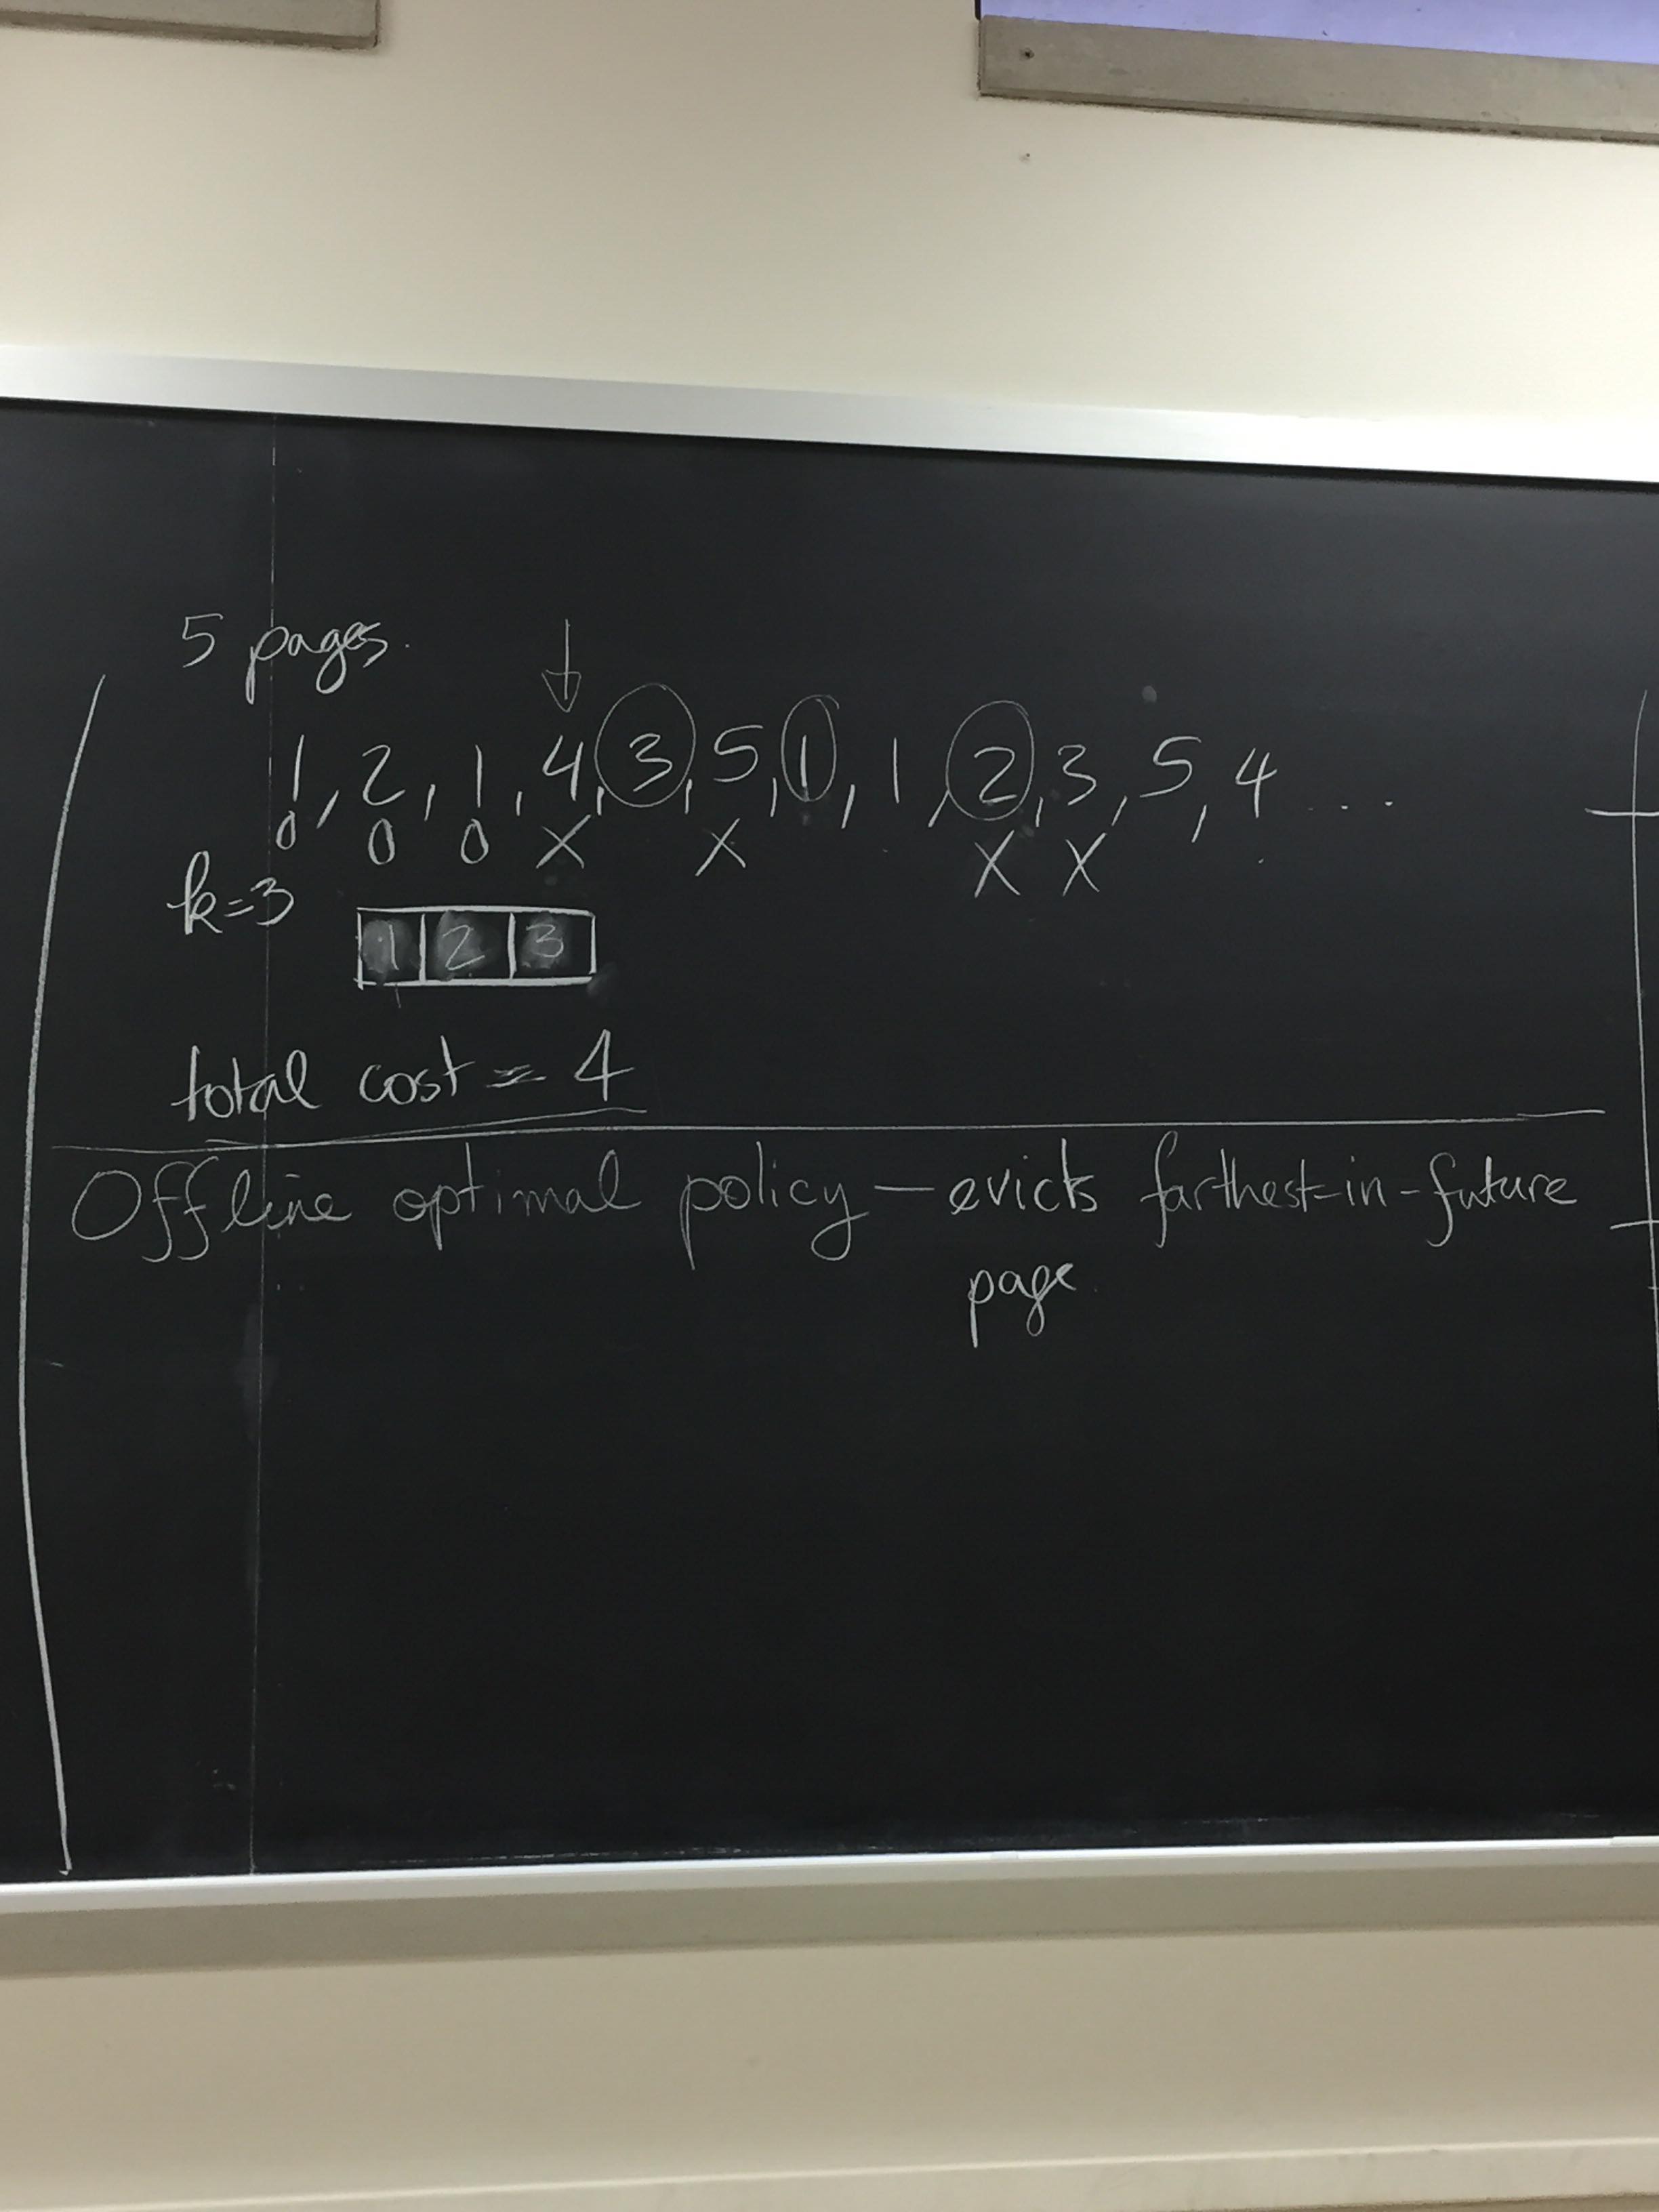 5 pages.
1, 2, 1, 4, 3, 5, 1, 1, 2, 3, 5, 4 ...
0 0 0 X X X X
k=3
1 2 3
total cost = 4
Offline optimal policy — evicts farthest-in-future
page